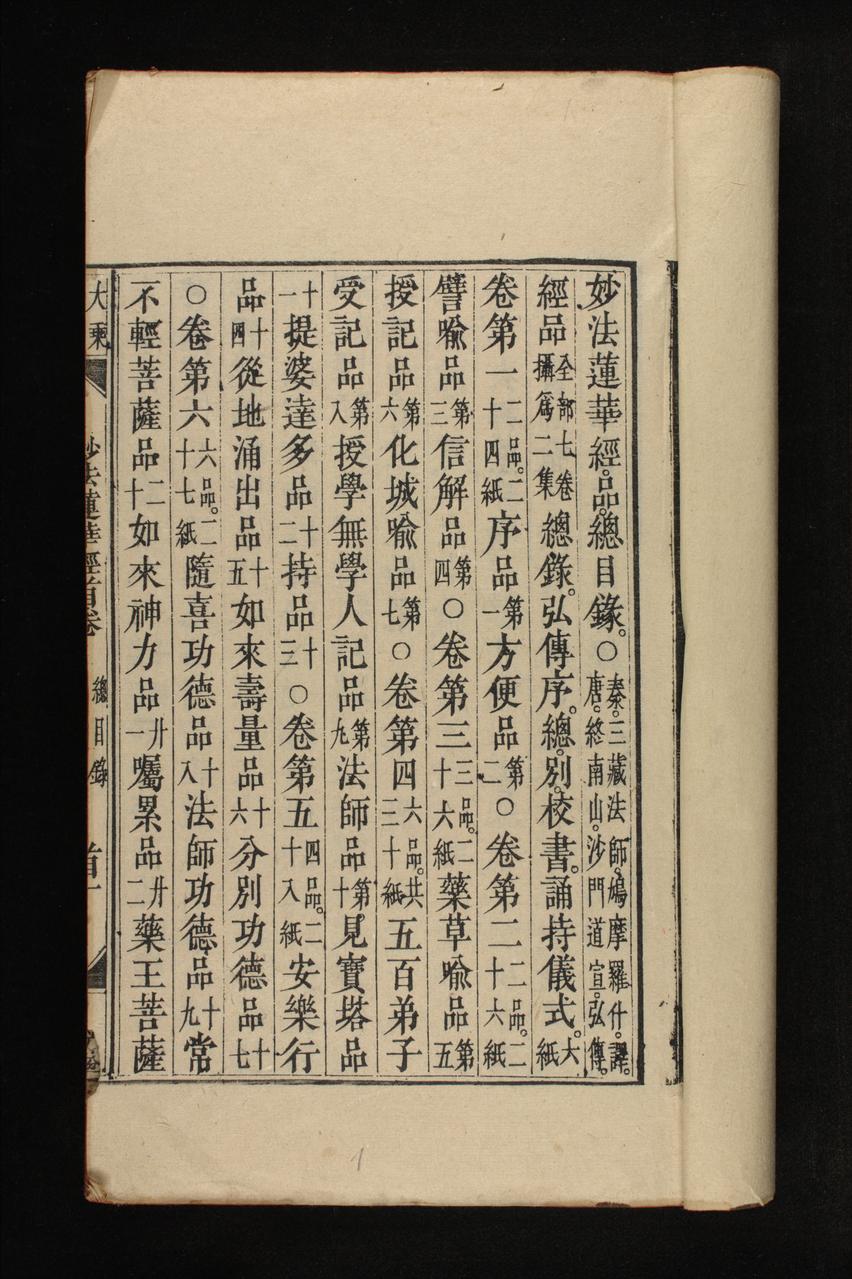 妙法蓮華經。品。總目錄。○秦。三藏法師。鳩摩羅什。譯。唐。終南山。沙門道宣。弘傳。
經品全部七卷攝爲二集總錄。弘傳序。總。別。校書。誦持儀式。六紙
卷第一二品。二十四紙序品第一方便品第二○卷第二二品。二十六紙
譬喻品第三信解品第四○卷第三三品。二十六紙藥草喻品第五
授記品第六化城喻品第七○卷第四六品。共三十紙五百弟子
受記品第八授學無學人記品第九法師品第十見寶塔品
十一提婆達多品十二持品十三○卷第五四品。二十八紙安樂行
品十四從地涌出品十五如來壽量品十六分別功德品十七
○卷第六六品。二十七紙隨喜功德品十八法師功德品十九常
不輕菩薩品二十如來神力品廿一囑累品廿二藥王菩薩
大乘 妙法蓮華經首卷 總目錄 首一
1